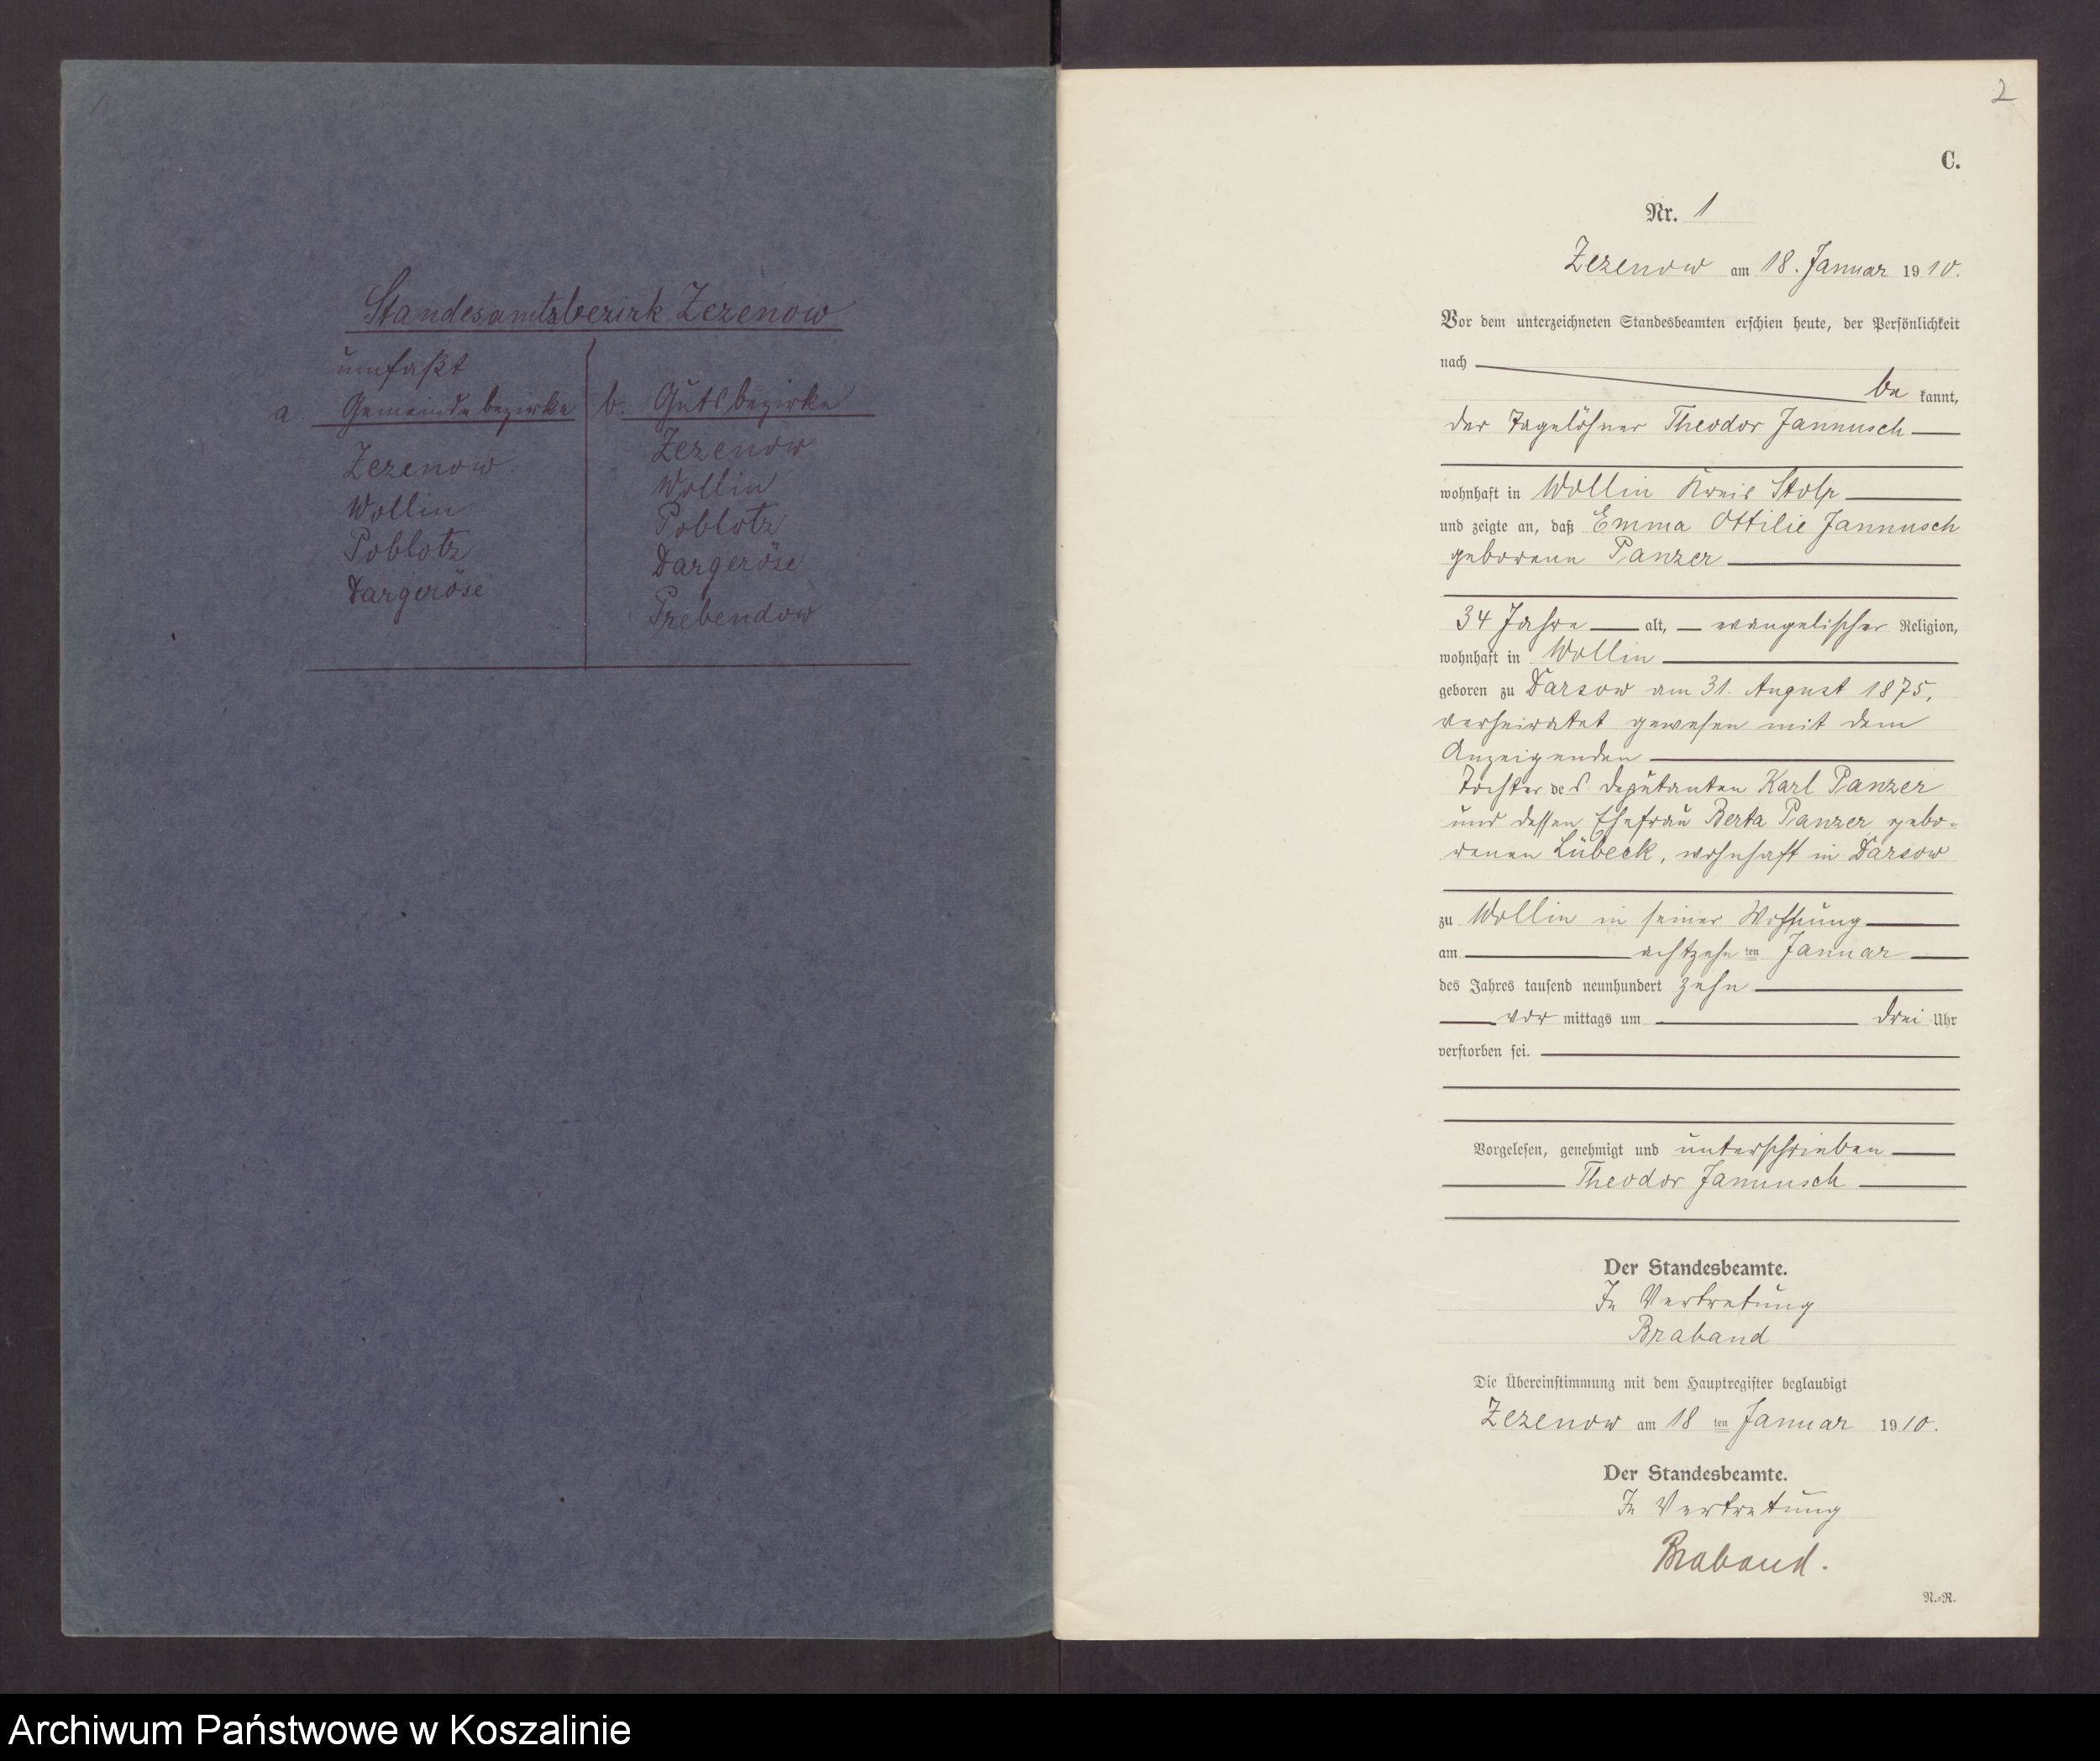 Standesamtsbezirk Zezenow
umfaßt
a Gemeindebezirke
Zezenow
Wollin
Poblotz
Dargeröse
b. Gutsbezirke
Zezenow
Wollin
Poblotz
Dargeröse
Prebendow
2
C.
Nr. 1
Zezenow am 18. Januar 1910.
Vor dem unterzeichneten Standesbeamten erschien heute, der Persönlichkeit
nach
be kannt,
der Tagelöhner Theodor Jannusch
wohnhaft in Wollin Kreis Stolp
und zeigte an, daß Emma Ottilie Jannusch
geborene Panzer
34 Jahre alt, evangelischer Religion,
wohnhaft in Wollin
geboren zu Darsow am 31. August 1875,
verheiratet gewesen mit dem
Anzeigenden
Tochter des Deputanten Karl Panzer
und dessen Ehefrau Berta Panzer, gebo-
renen Lübeck, wohnhaft in Darsow
zu Wollin in seiner Wohnung
am achtzehnten Januar
des Jahres tausend neunhundert zehn
vor mittags um drei Uhr
verstorben sei.
Vorgelesen, genehmigt und unterschrieben
Theodor Jannusch
Der Standesbeamte.
In Vertretung
Braband
Die Übereinstimmung mit dem Hauptregister beglaubigt
Zezenow am 18 ten Januar 1910.
Der Standesbeamte.
In Vertretung
Braband.
N.-R.
Archiwum Państwowe w Koszalinie